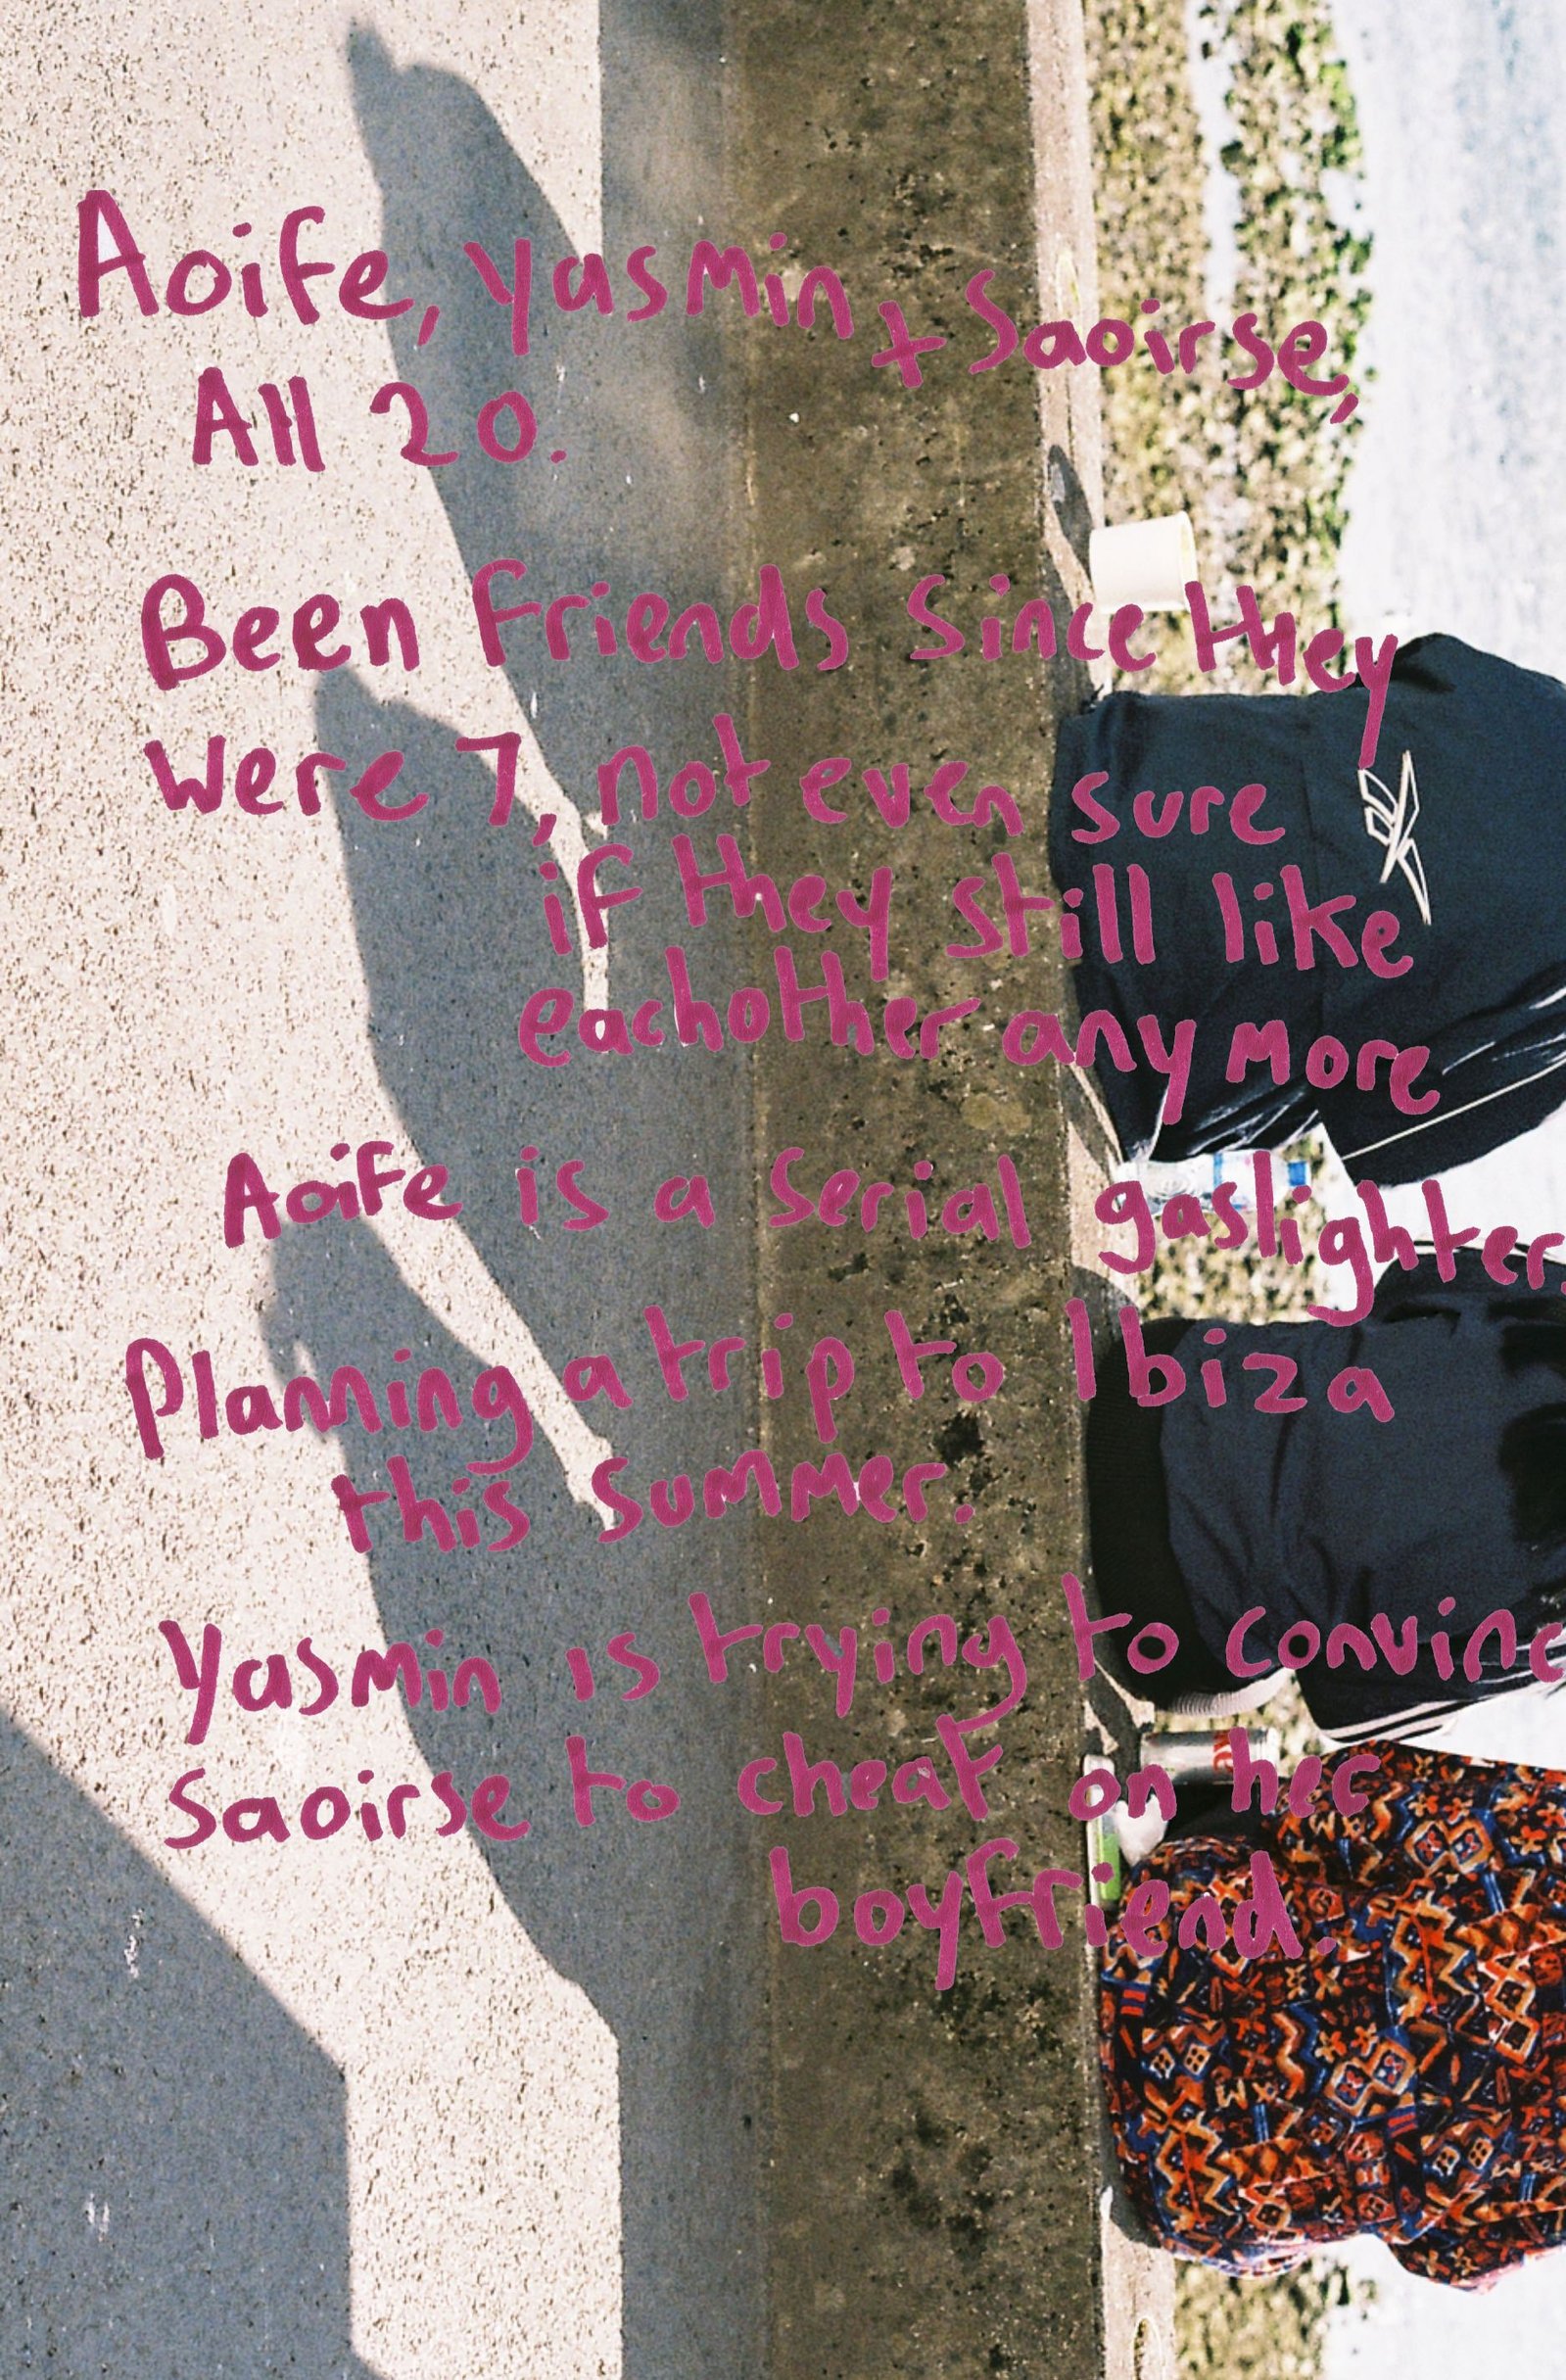 Aoife, Yasmin + Saoirse,
All 20.
Been friends since they
were 7, not even sure
if they still like
eachother anymore
Aoife is a serial gaslighter.
Planning a trip to Ibiza
this summer.
Yasmin is trying to convinc
Saoirse to cheat on her
boyfriend.